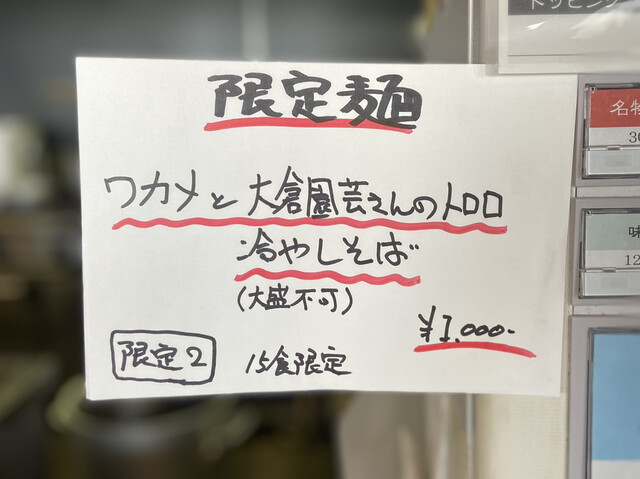 トッピング
限定麺
ワカメと大倉園芸さんのトロロ
冷やしそば
(大盛不可)
¥1,000-
限定2
15食限定
名物
味